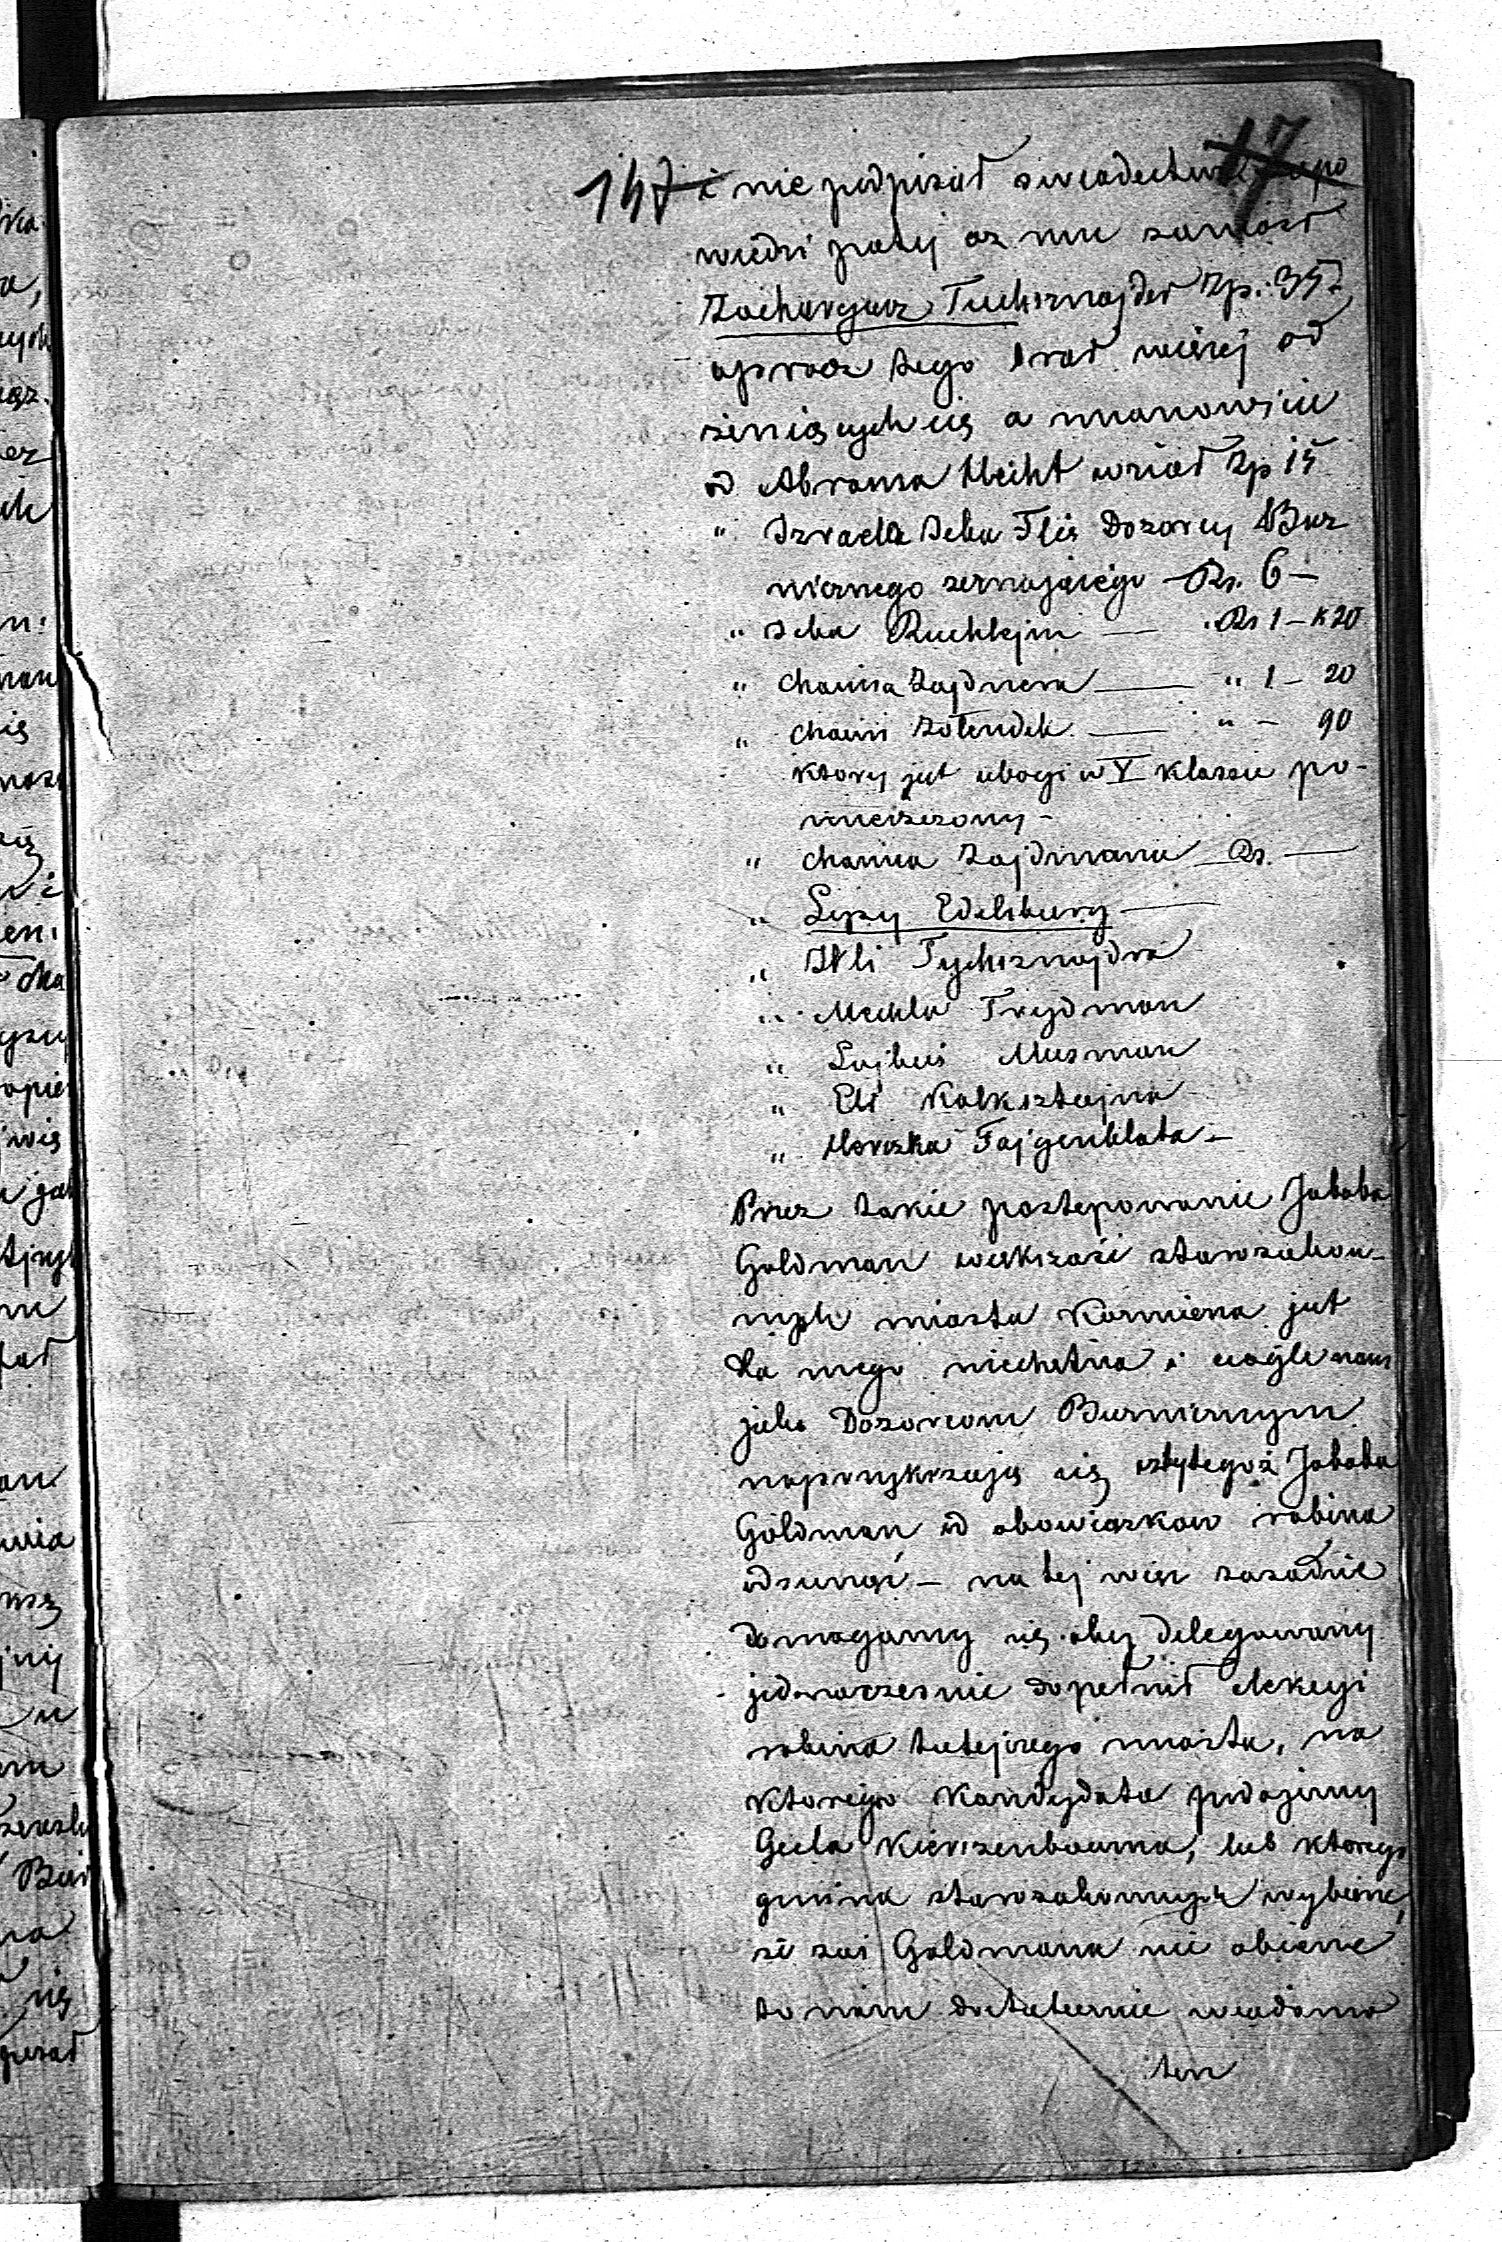 147 17
i nie podpisał swiadectwa zapo
wiedzi poty az mu zaniosł
Zacharyasz Tuchsznajder Zp: 35.
oprocz tego brał wiecej od
zeniących się a mianowicie
od Abrama Hecht wziął Zp 15
" Izraela Seba Flis Dozorcy Buz
nicznego zeznającego Rs. 6 –
" Seba Ruchlejm — Rs 1 – k 20
" Chaima Zajdnera — " 1 – 20
" Chaim Zołendek — " – 90
ktory jest ubogi w V klassie po-
mieszczony –
" Chaima Zajdmana Rs. —
" Lipy Edelsburg —
" Itli Tychsznajdra
" Mechla Frydman
" Lajbuś Musman
" Eli Kalksztajna
" Moszka Fajgenblata –
Przez takie postepowanie Jakoba
Goldman wiekszość starozakon-
nych miasta Kozmiena jest
dla niego niechetna i ciągle nam
jako Dozorcom Buzniczym
naprzykrzają się izby tegoż Jakoba
Goldman od obowiązkow rabina
odsunąć – na tej więc zasadzie
domagamy się aby delegowany
jednoczesnie dopełnił elekcyi
rabina tutejszego miasta, na
ktorego kandydata podajemy
Gecla Kierszenbauma, lub ktorego
gmina starozakonnych wybierze,
ze zas Goldmana nie obierze
to nam dostatecznie wiadomo
ten